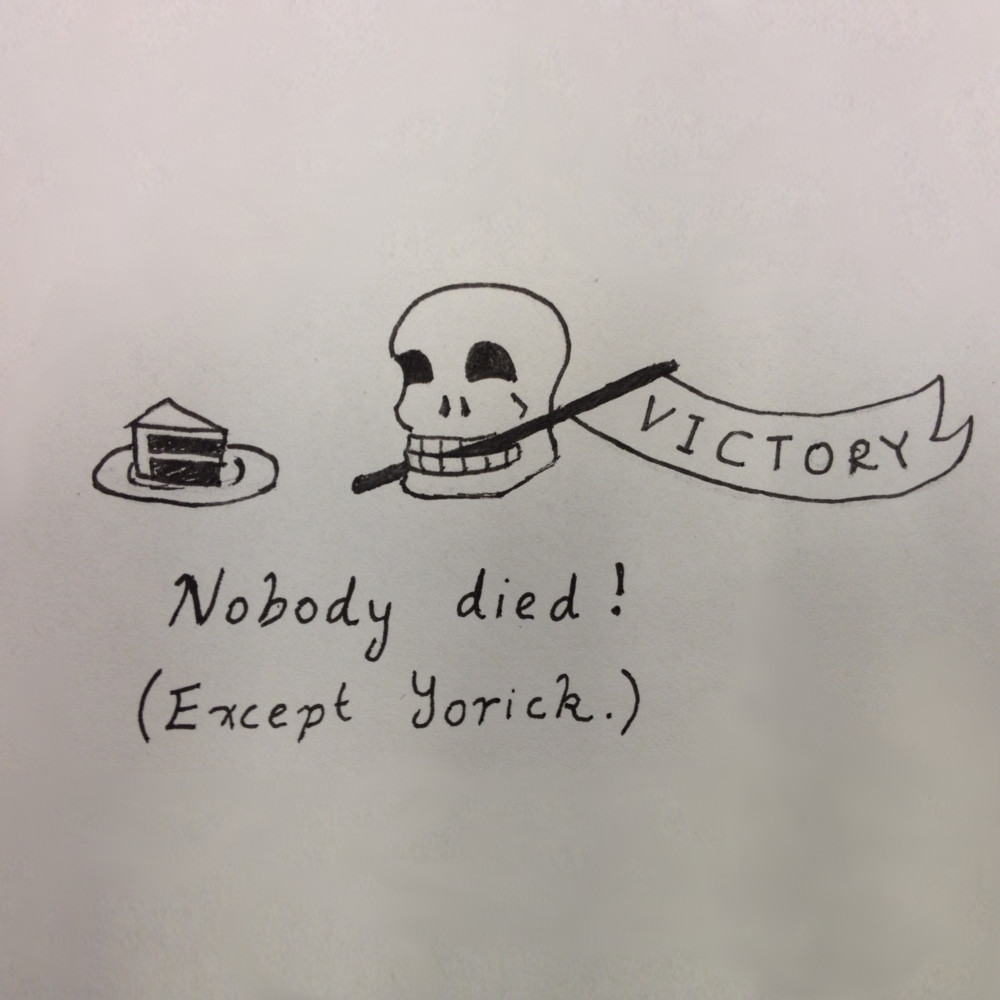 VICTORY
Nobody died!
(Except Yorick.)